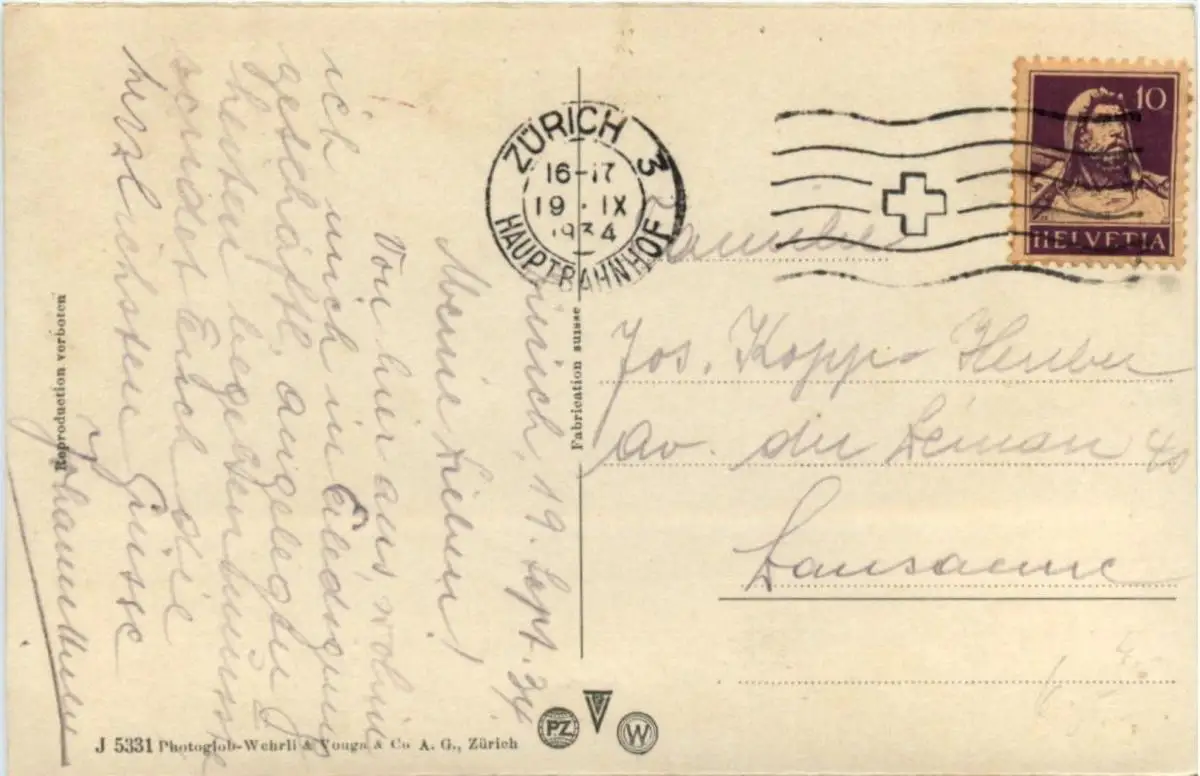 Zürich, 19. Sept. 34
Meine Lieben!
Von hier aus, wohin
ich mich in Erledigung
geschäftl. angelegter
sendet Euch die
herzlichsten Grüsse
ZÜRICH 3
16-17
19. IX
1934
HAUPTBAHNHOF
10
HELVETIA
Familie
Jos. Kopp-
av. du Léman 40
Lausanne
Reproduction verboten
Fabrication suisse
J 5331 Photoglob-Wehrli & Vouga & Co A. G., Zürich
PZ
V
W